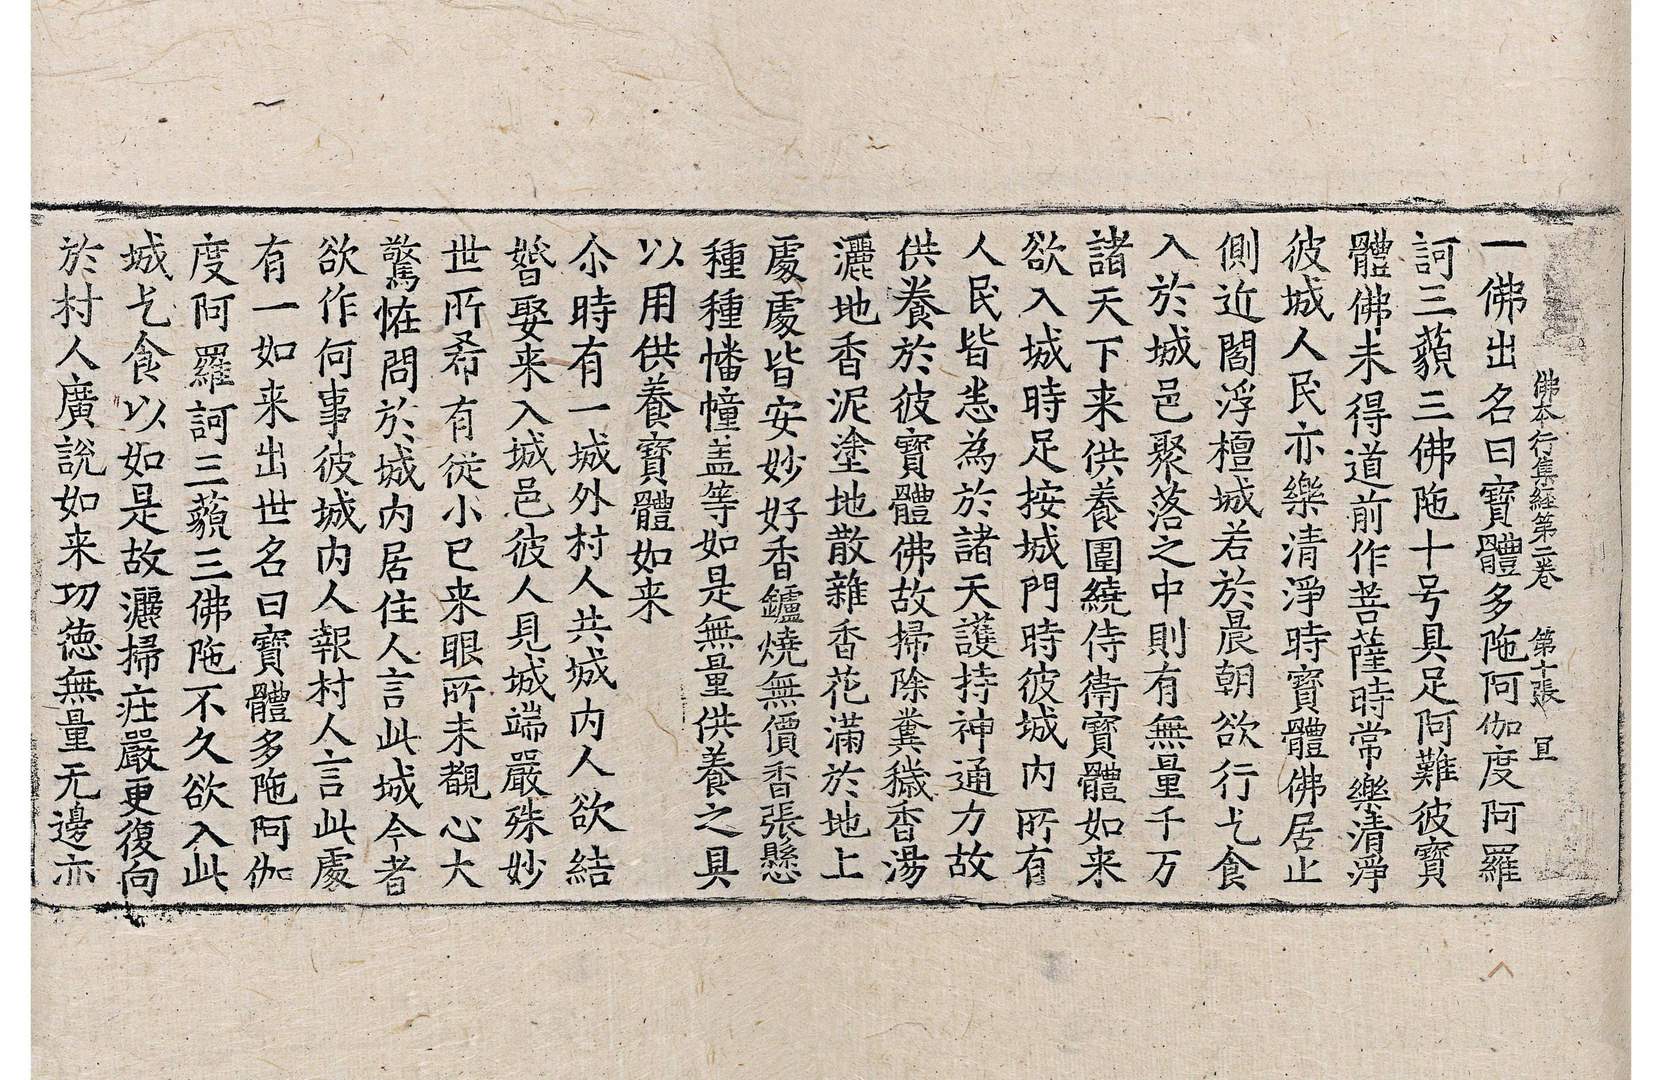 佛本行集経第二卷 第十張 𡨴
一佛出名曰寶體多陁阿伽度阿羅
訶三藐三佛陁十号具足阿難彼寶
體佛未得道前作菩薩時常樂清淨
彼城人民亦樂清淨時寶體佛居止
側近閻浮檀城若於晨朝欲行乞食
入於城邑聚落之中則有無量千万
諸天下来供養圍繞侍衛寶體如来
欲入城時足按城門時彼城内所有
人民皆悉為於諸天護持神通力故
供養於彼寶體佛故掃除糞穢香湯
灑地香泥塗地散雜香花滿於地上
處處皆安妙好香鑪燒無價香張懸
種種幡幢盖等如是無量供養之具
以用供養寶體如来
尒時有一城外村人共城内人欲結
婚娶来入城邑彼人見城端嚴殊妙
世所希有従小已来眼所未覩心大
驚恠問於城内居住人言此城今者
欲作何事彼城内人報村人言此處
有一如来出世名曰寶體多陁阿伽
度阿羅訶三藐三佛陁不久欲入此
城乞食以如是故灑掃庄嚴更復向
於村人廣說如来功徳無量无邊亦